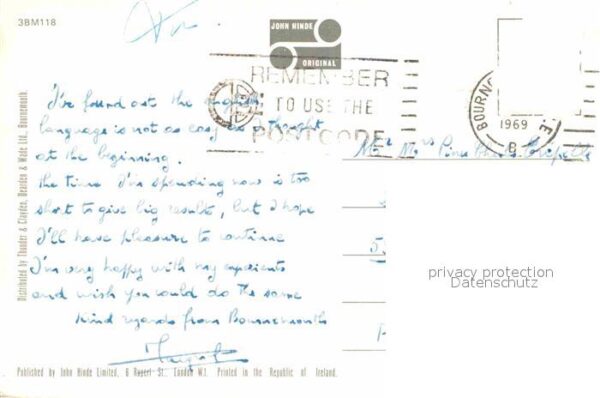 3BM118
JOHN HINDE
ORIGINAL
REMEMBER
TO USE THE
POSTCODE
BOURNE
1969
I've found out the english
language is not as easy as I thought
at the beginning.
the time I'm spending now is too
short to give big results, but I hope
I'll have pleasure to continue
I'm very happy with my experients
and wish you could do the same
kind regards from Bournemouth
privacy protection
Datenschutz
Distributed by Thunder & Clayden, Dearden & Wade Ltd., Bournemouth.
Published by John Hinde Limited, 6 Rupert St. London W.1. Printed in the Republic of Ireland.